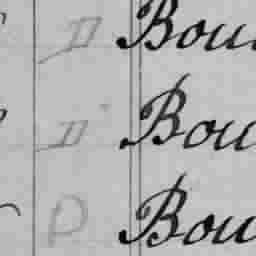 D Bou
D Bou
D Bou